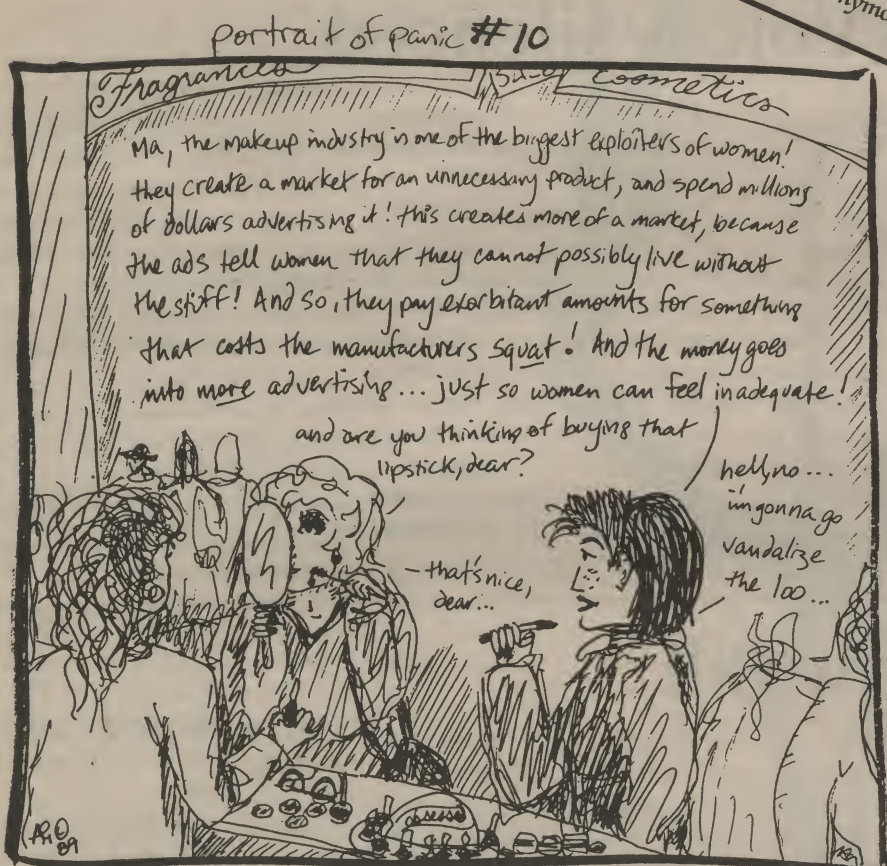 portrait of panic #10
Fragrances
Cosmetics
Ma, the makeup industry is one of the biggest exploiters of women!
they create a market for an unnecessary product, and spend millions
of dollars advertising it! this creates more of a market, because
the ads tell women that they cannot possibly live without
the stuff! And so, they pay exorbitant amounts for something
that costs the manufacturers squat! And the money goes
into more advertising... just so women can feel inadequate!
and are you thinking of buying that
lipstick, dear?
hell, no...
i'm gonna go
vandalize
the loo...
- that's nice,
dear...
89